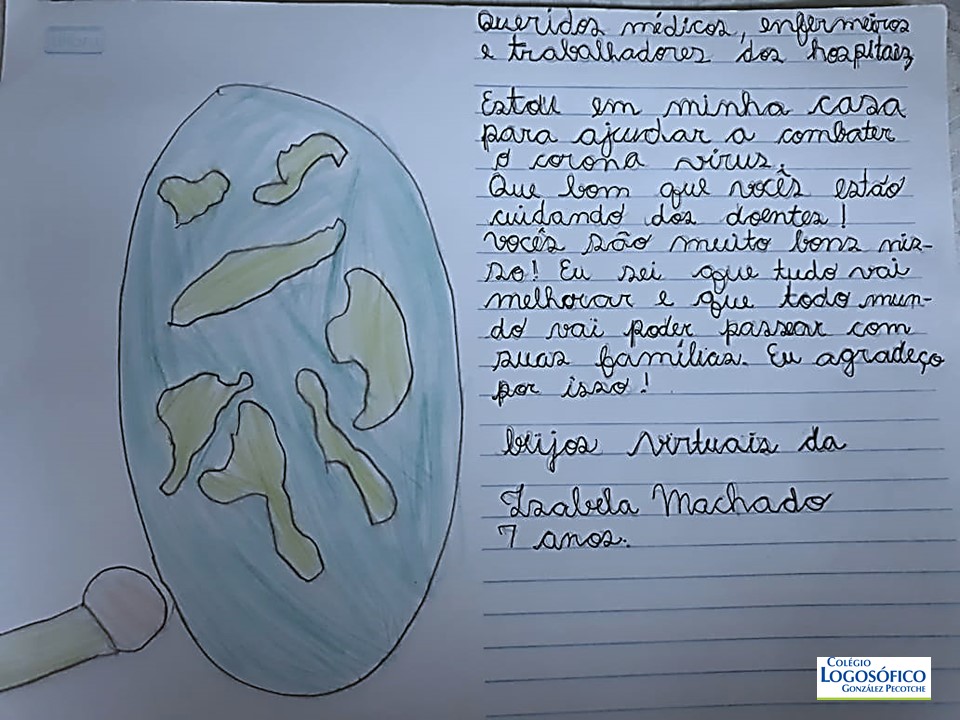 Queridos médicos, enfermeiros
e trabalhadores dos hospitaes
Estou em minha casa
para ajudar a combater
o corona vírus.
Que bom que vocês estão
cuidando dos doentes!
Vocês são muito bons nis-
so! Eu sei que tudo vai
melhorar e que todo mun-
do vai poder passear com
suas famílias. Eu agradeço
por isso!
beijos virtuais da
Izabela Machado
7 anos.
COLÉGIO
LOGOSÓFICO
GONZÁLEZ PECOTCHE